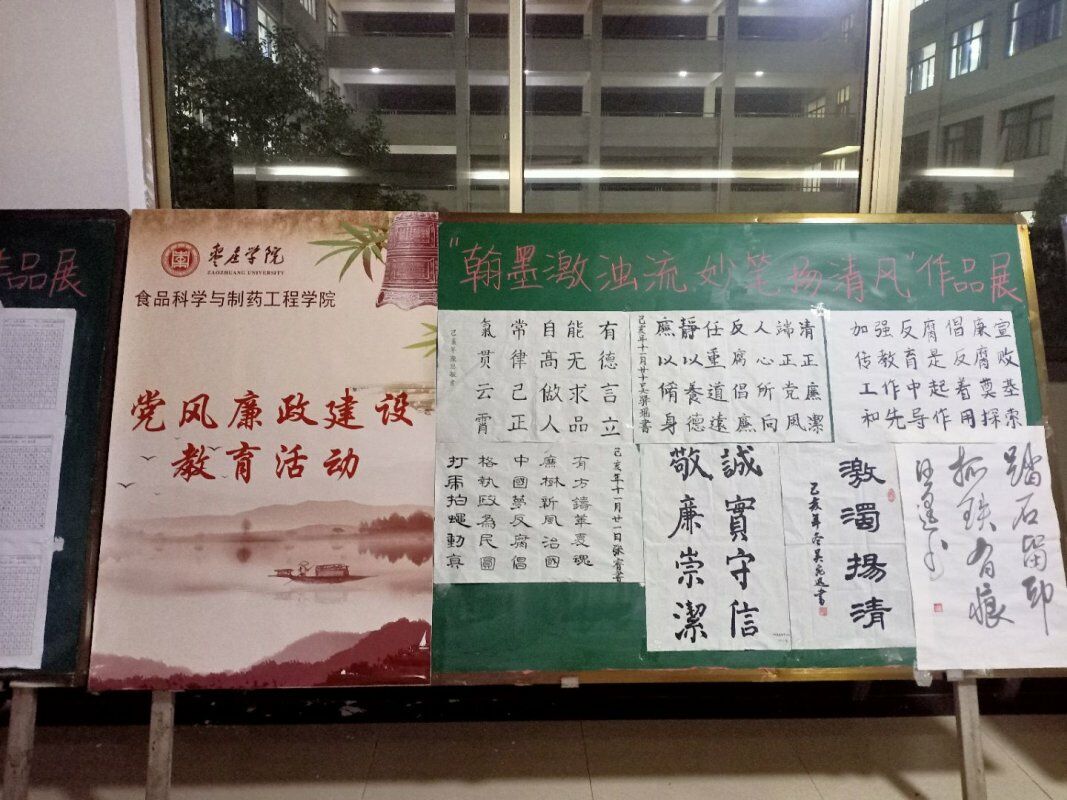 品展
枣庄学院
ZAOZHUANG UNIVERSITY
食品科学与制药工程学院
党风廉政建设
教育活动
"翰墨激浊流,妙笔扬清风"作品展
有德言立
能无求品
自高做人
常律己正
氣贯云霄
清正廉潔
端正党风
人心所向
反腐倡廉
任重道遠
靜以養德
廉以脩身
己亥年十一月廿十
加强反腐倡廉宣
传教育是反腐败
工作中起着奠基
和先导作用探索
己亥年十一月廿一日张
有方鑄華夏魂
廉樹新風治國
中國夢反腐倡
格執政為民圆
打虎拍蠅動真
誠實守信
敬廉崇潔
激濁揚清
己亥年冬吴
踏石留印
抓铁有痕